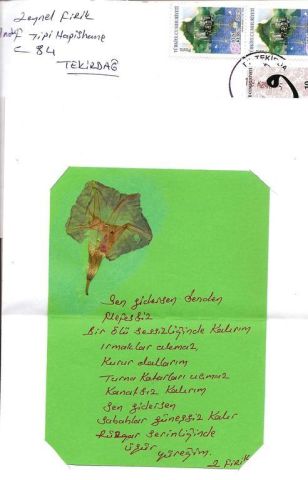 Zeynel Firik
Tipi Hapishane
C 84
TEKİRDAĞ
TÜRKİYE CUMHURİYETİ
TÜRKİYE CUMHURİYETİ
TEKİRDA
Sen gidersen senden
Nefessiz
Bir ölü sessizliğinde kalırım
ırmaklar akmaz
Kurur dallarım
Turna Katarları uçmaz
Kanatsız Kalırım
Sen gidersen
sabahlar güneşsiz Kalır
Rüzgar serinliğinde
üşür
yüreğim.
Z Firik